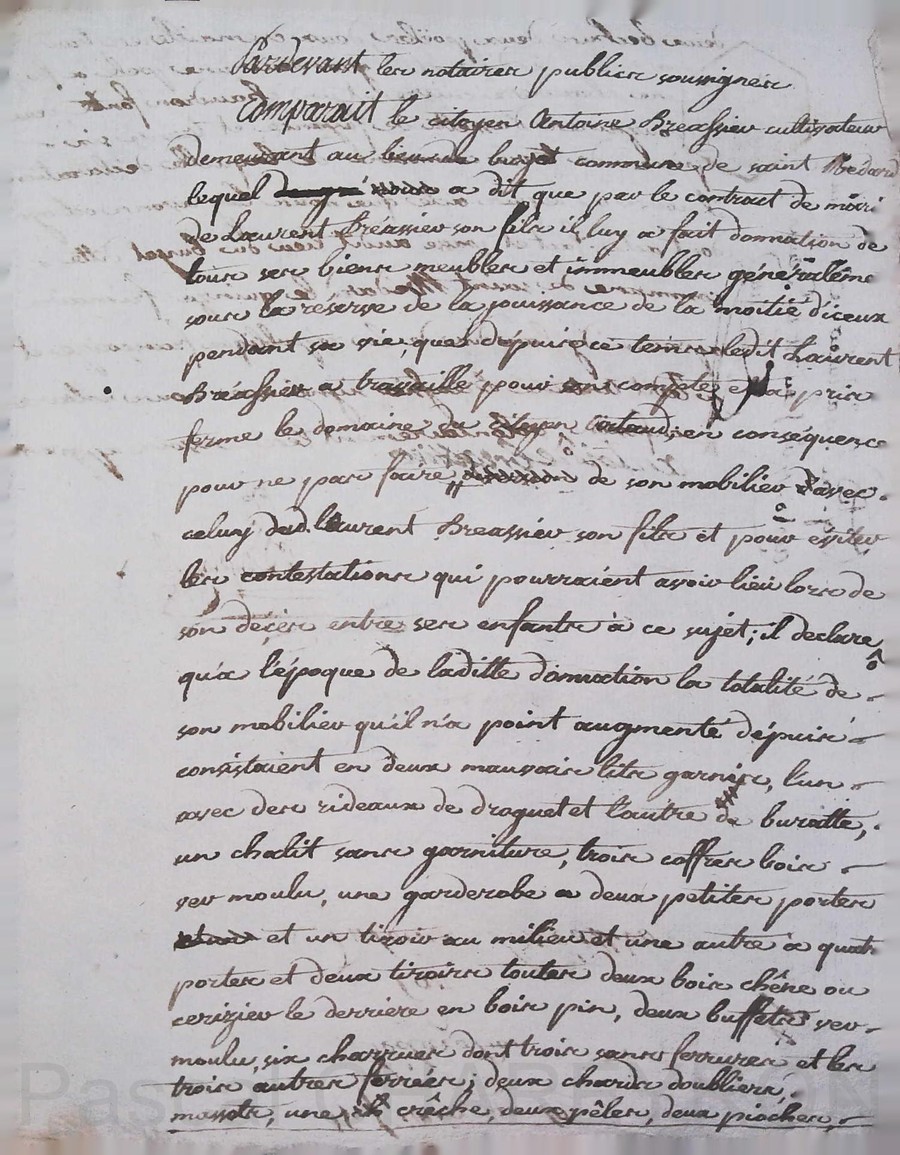 Pardevant les notaires publics soussignes
Comparait le citoyen Antoine Breassieu cultivateur
demeurant au lieu de buget commune de saint Medard
lequel a dit que par le contrat de mari
de Laurent Bréassieu son fils il luy a fait donnation de
tous ses biens meubles et immeubles générâleme
sous la reserve de la jouissance de la moitié diceux
pendant sa vie, que dépuis ce tems ledit Laurent
Bréassieu a travaillé pour son compte, et a pris
ferme le domaine du citoyen en conséquence
pour ne pas faire de son mobilier d'avec
celuy dud. Laurent Breassieu son fils et pour eviter
les contestations qui pourraient avoir lieu lors de
son décès entre ses enfants à ce sujet; il declare
qu'a l'époque de laditte donnation la totalité de
son mobilier qu'il n'a point augmenté dépuis
consistaient en deux mauvais lits garnis, l'un
avec des rideaux de droguet et l'autre de buratte,
un chalit sans garniture, trois coffres bois
ver moulu, une garderobe a deux petites portes
et un tiroir au milieu et une autre a quatr
portes et deux tiroirs toutes deux bois chêne ou
cerizier le derrière en bois pin, deux buffets ver
moulu, six charrues dont trois sans ferrures et les
trois autres ferrées; deux chards doubliers,
une crêche, deux pêles, deux pioches,
Pas